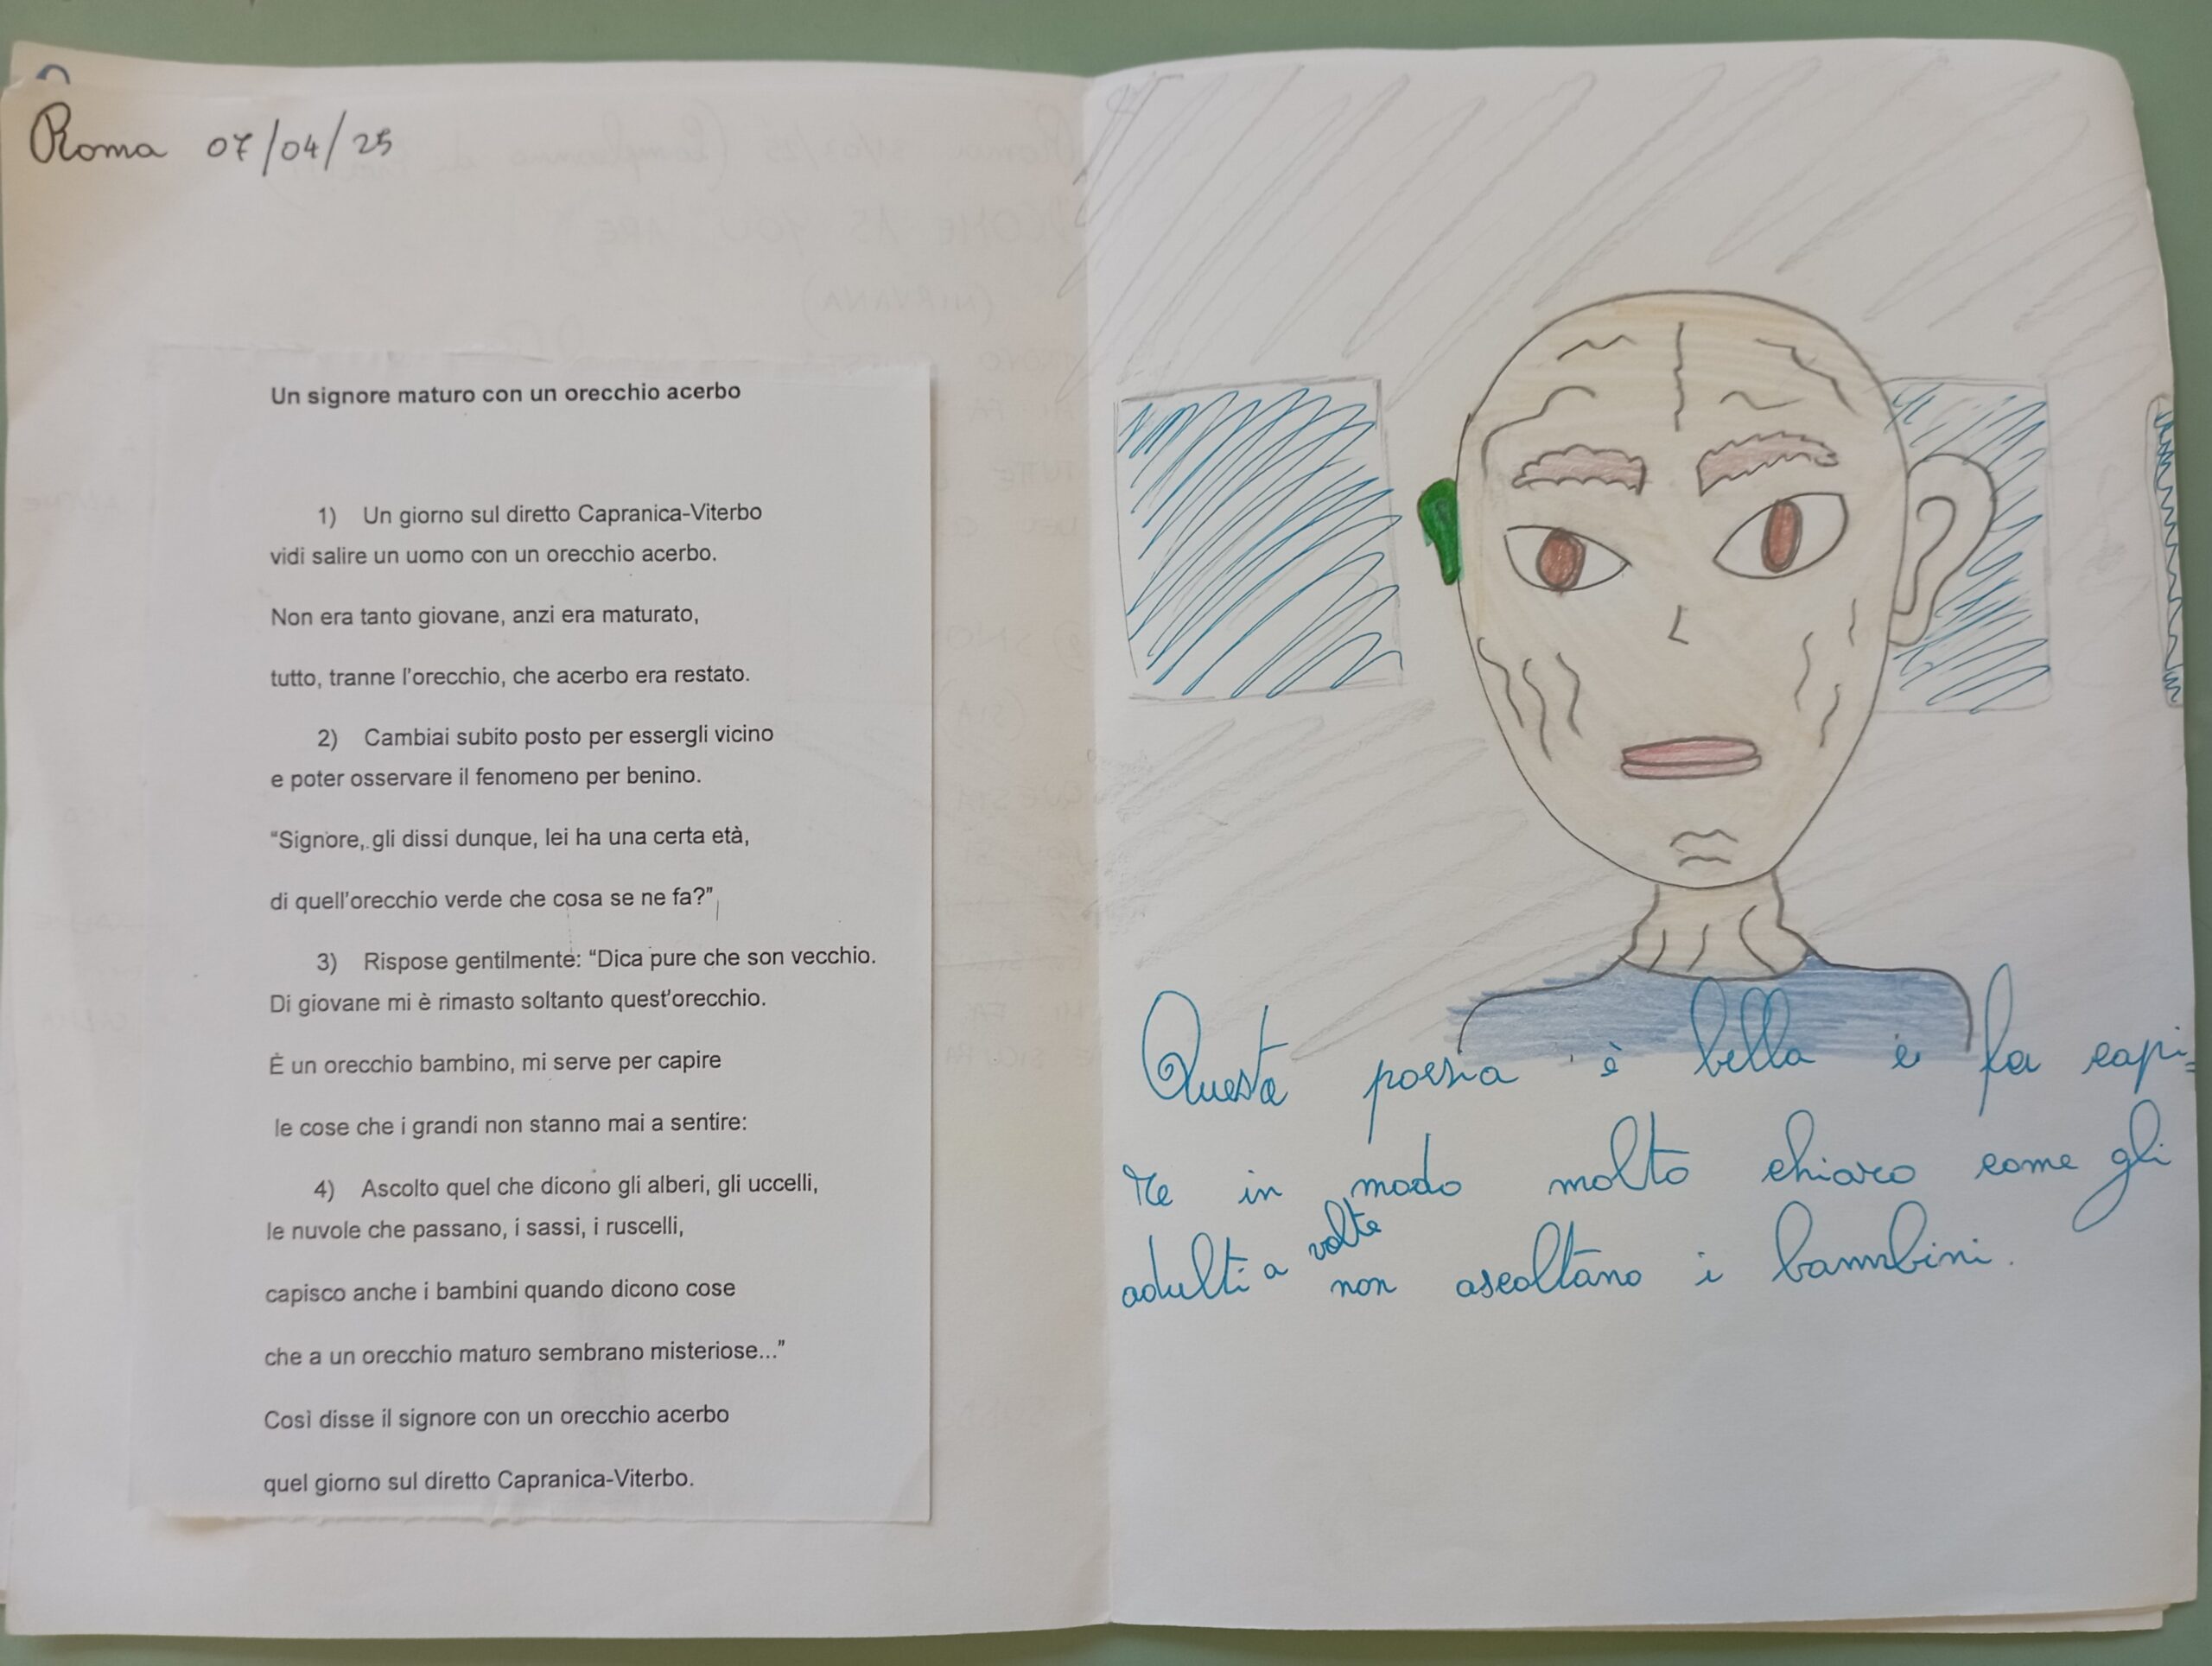 Roma 07/04/25
Un signore maturo con un orecchio acerbo
1) Un giorno sul diretto Capranica-Viterbo
vidi salire un uomo con un orecchio acerbo.
Non era tanto giovane, anzi era maturato,
tutto, tranne l'orecchio, che acerbo era restato.
2) Cambiai subito posto per essergli vicino
e poter osservare il fenomeno per benino.
“Signore, gli dissi dunque, lei ha una certa età,
di quell'orecchio verde che cosa se ne fa?”
3) Rispose gentilmente: “Dica pure che son vecchio.
Di giovane mi è rimasto soltanto quest'orecchio.
È un orecchio bambino, mi serve per capire
le cose che i grandi non stanno mai a sentire:
4) Ascolto quel che dicono gli alberi, gli uccelli,
le nuvole che passano, i sassi, i ruscelli,
capisco anche i bambini quando dicono cose
che a un orecchio maturo sembrano misteriose...”
Così disse il signore con un orecchio acerbo
quel giorno sul diretto Capranica-Viterbo.
Questa poesia è bella e fa capi=
re in modo molto chiaro come gli
adulti a volte non ascoltano i bambini.